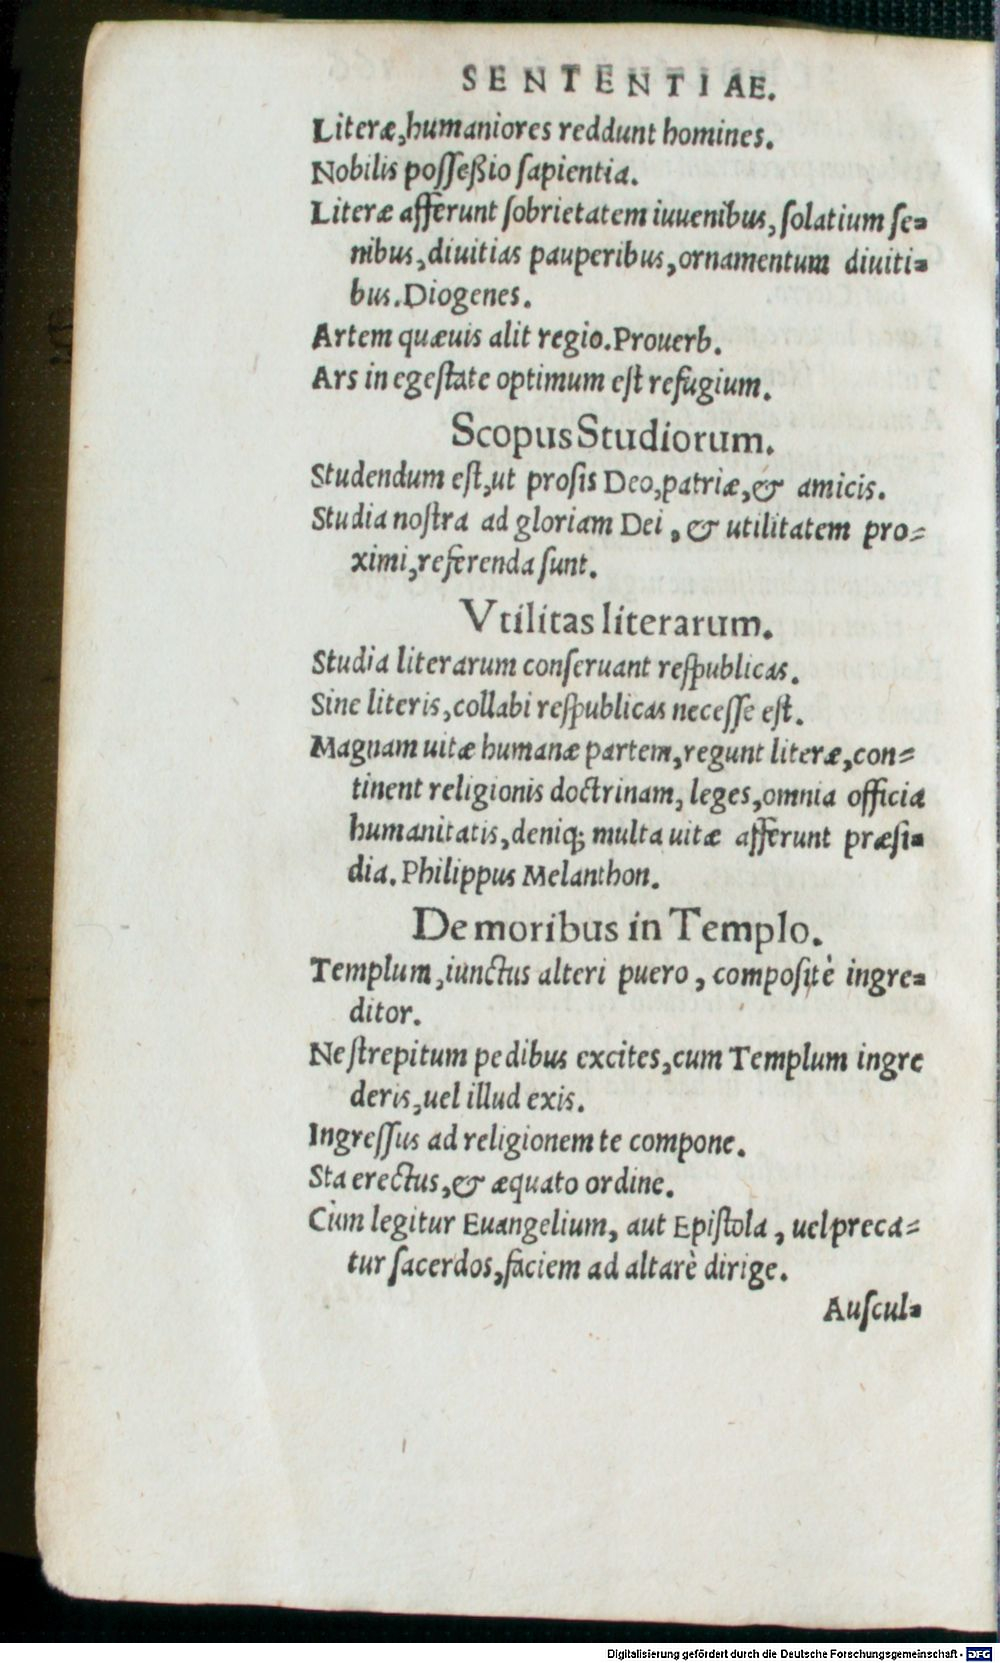 SENTENTIAE.
Literæ,humaniores reddunt homines.
Nobilis poſſeßio ſapientia.
Literæ afferunt ſobrietatem iuuenibus, ſolatium ſe=
nibus,diuitias pauperibus,ornamentum diuiti=
bus.Diogenes.
Artem quæuis alit regio.Prouerb.
Ars in egeſtate optimum eſt refugium.
Scopus Studiorum.
Studendum eſt,ut proſis Deo,patriæ,& amicis.
Studia noſtra ad gloriam Dei , & utilitatem pro=
ximi,referenda ſunt.
Vtilitas literarum.
Studia literarum conſeruant reſpublicas.
Sine literis,collabi reſpublicas neceſſe eſt.
Magnam uitæ humanæ partem,regunt literæ,con=
tinent religionis doctrinam, leges,omnia officia
humanitatis,deniq; multa uitæ afferunt præſi=
dia. Philippus Melanthon.
De moribus in Templo.
Templum,iunctus alteri puero , compoſitè ingre=
ditor.
Ne ſtrepitum pedibus excites,cum Templum ingre
deris,uel illud exis.
Ingreſſus ad religionem te compone.
Sta erectus,& æquato ordine.
Cùm legitur Euangelium, aut Epiſtola , uel preca=
tur ſacerdos,faciem ad altarè dirige.
Auſcul=
Digitalisierung gefördert durch die Deutsche Forschungsgemeinschaft - DFG